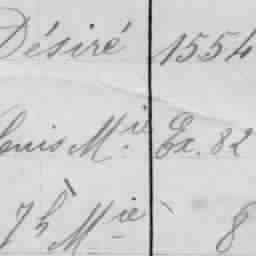 Désiré 1554
Louis M.ie Ex. 82
7h M.ie 8